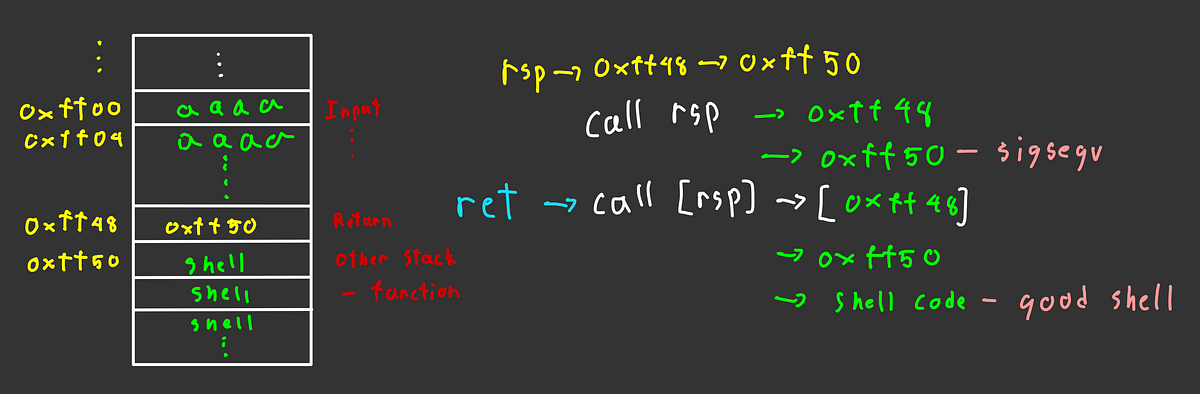 0xff00 a a a a Input
0xff04 a a a a
0xff48 0xff50 Return
0xff50 shell Other stack
shell - function
shell
rsp → 0xff48 → 0xff50
call rsp → 0xff48
→ 0xff50 - sigsegv
ret → call [rsp] → [0xff48]
→ 0xff50
→ shell code - good shell